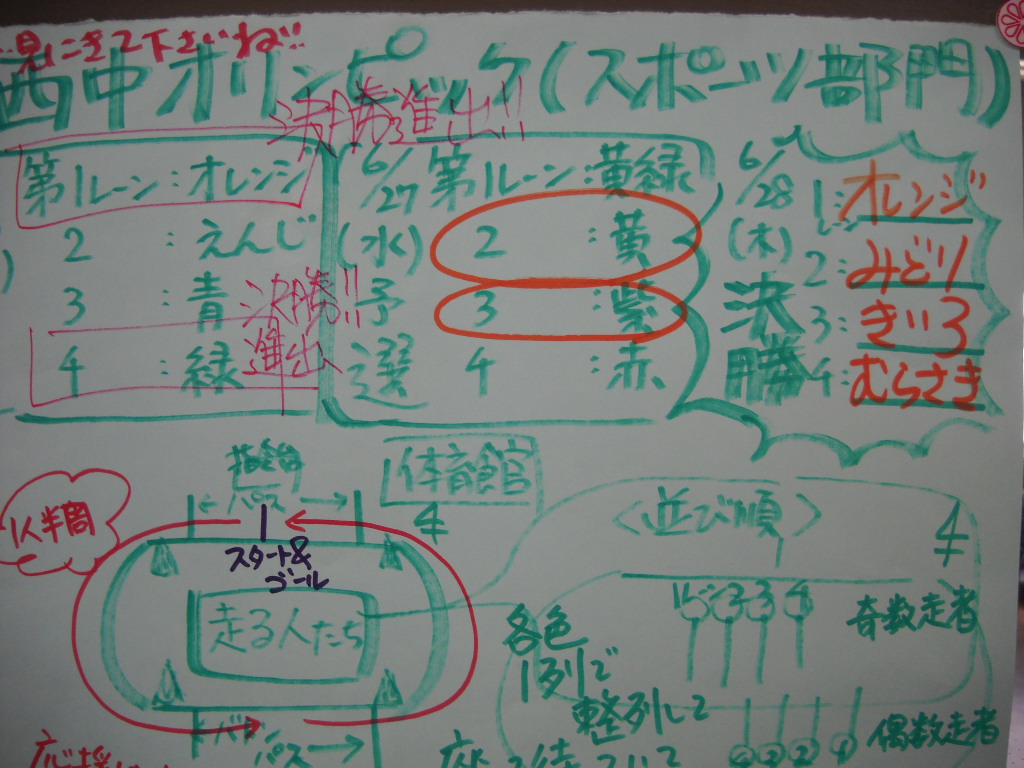 見にきて下さいね!!
西中オリンピック(スポーツ部門)
決勝進出!!
第1レーン:オレンジ
2 :えんじ
3 :青
4 :緑
決勝!!
進出
6/27
(水)
予選
第1レーン:黄緑
2 :黄
3 :紫
4 :赤
6/28
(木)
決勝
1:オレンジ
2:みどり
3:きいろ
4:むらさき
指令台
体育館
パス
1人半周
スタート&
ゴール
走る人たち
パス
<並び順>
奇数走者
偶数走者
各色
1列で
整列して